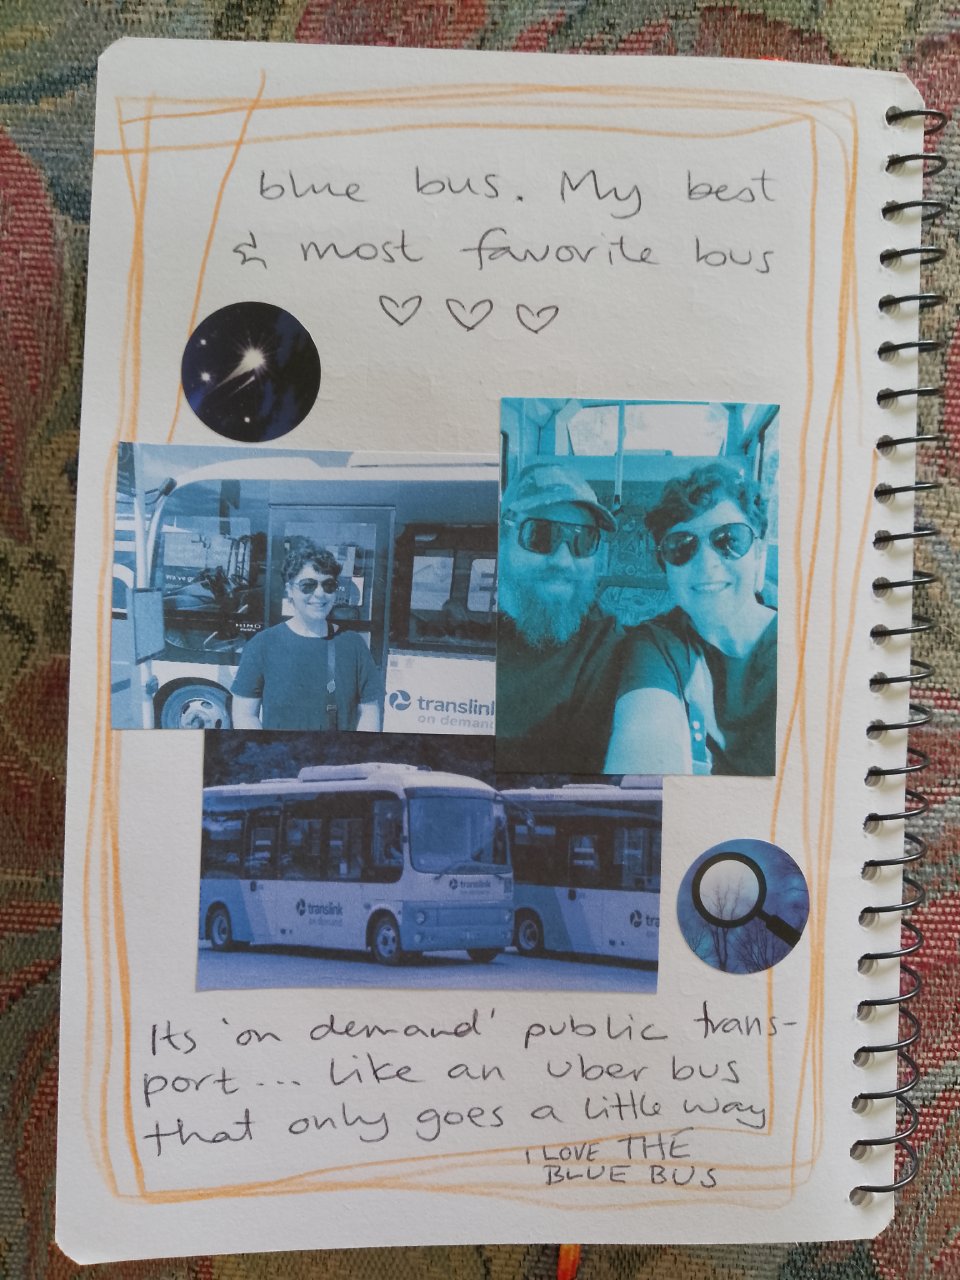 blue bus. My best
& most favorite bus
HINO
translink
on demand
translink
on demand
translink
on demand
tra
Its 'on demand' public trans-
port... like an uber bus
that only goes a little way
I LOVE THE
BLUE BUS